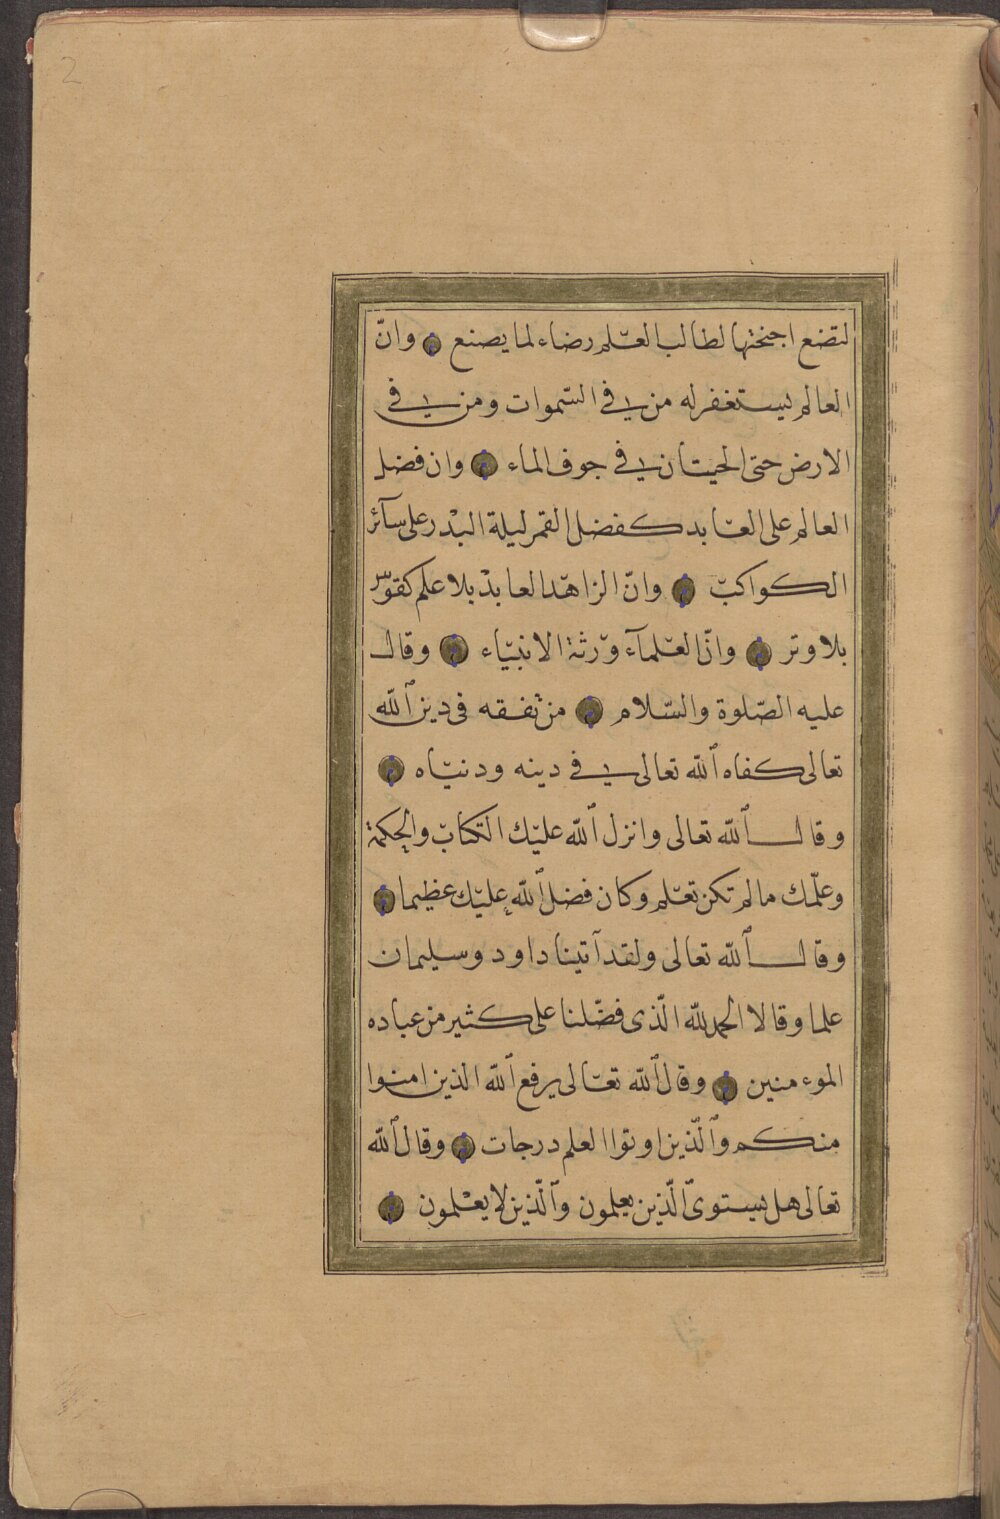 2
لتضع اجنحتها لطالب العلم رضاء لما يصنع وانّ
العالم يستغفر له من في السّموات ومن في
الارض حتى الحيتان في جوف الماء وان فضل
العالم على العابد كفضل القمر ليلة البدر على سآئر
الكواكب وانّ الزاهد العابد بلا علم كقوس
بلا وتر وانّ العلمآء ورثة الانبيّاء وقال
عليه الصّلوة والسّلام من تفقه فى دين ٱللّه
تعالى كفاه ٱللّه تعالى في دينه ودنيّاه
وقال ٱللّه تعالى وانزل ٱللّه عليك الكتاب والحكمة
وعلّمك مالم تكن تعلم وكان فضل ٱللّه عليك عظيما
وقال ٱللّه تعالى ولقد آتينا داود وسليمان
علما وقالا الحمد للّه الّذى فضّلنا على كثير من عباده
الموءمنين وقال ٱللّه تعالى يرفع ٱللّه الذين امنوا
منكم وٱلّذين اوتوا العلم درجات وقال ٱللّه
تعالى هل يستوىّ الّذين يعلمون وٱلّذين لا يعلمون